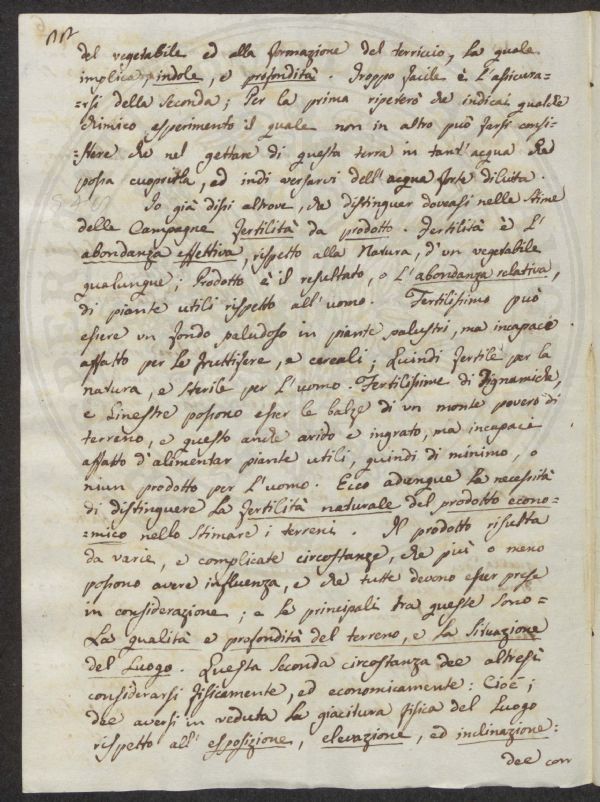 del vegetabile ed alla formazione del terriccio, la quale
implica, indole, e profondità. Troppo facile è l'assicura=
=rsi della seconda; Per la prima ripeterò che indicai qualche
chimico esperimento il quale non in altro può farsi consi=
=stere che nel gettare di questa terra in tant'acqua che
possa cuoprirla, ed indi versarvi dell'acqua forte diluita.
Io già dissi altrove, che distinguer doveasi nelle Stime
delle Campagne fertilità da prodotto. Fertilità è l'
abondanza effettiva, rispetto alla Natura, d'un vegetabile
qualunque; Prodotto è il resultato, o l'abondanza relativa,
di piante utili rispetto all'uomo. Fertilissimo può
essere un fondo paludoso in piante palustri, ma incapace
affatto per le fruttifere, e cereali; Quindi fertile per la
natura, e sterile per l'uomo. Fertilissime di Dignamiche,
e Ginestre possono esser le balze di un monte povero di
terreno, e questo anche arido e ingrato, ma incapace
affatto d'alimentar piante utili, quindi di minimo, o
niun prodotto per l'uomo. Ecco adunque la necessità
di distinguere la fertilità naturale del prodotto econo=
=mico nello Stimare i terreni. Il prodotto risulta
da varie, e complicate circostanze, che più o meno
possono avere influenza, e che tutte devono esser prese
in considerazione; e le principali tra queste sono=
La qualità e profondità del terreno, e la situazione
del Luogo. Questa seconda circostanza dee altresì
considerarsi fisicamente, ed economicamente: Cioè;
dee aversi in veduta la giacitura fisica del Luogo
rispetto all'esposizione, elevazione, ed inclinazione:
dee con